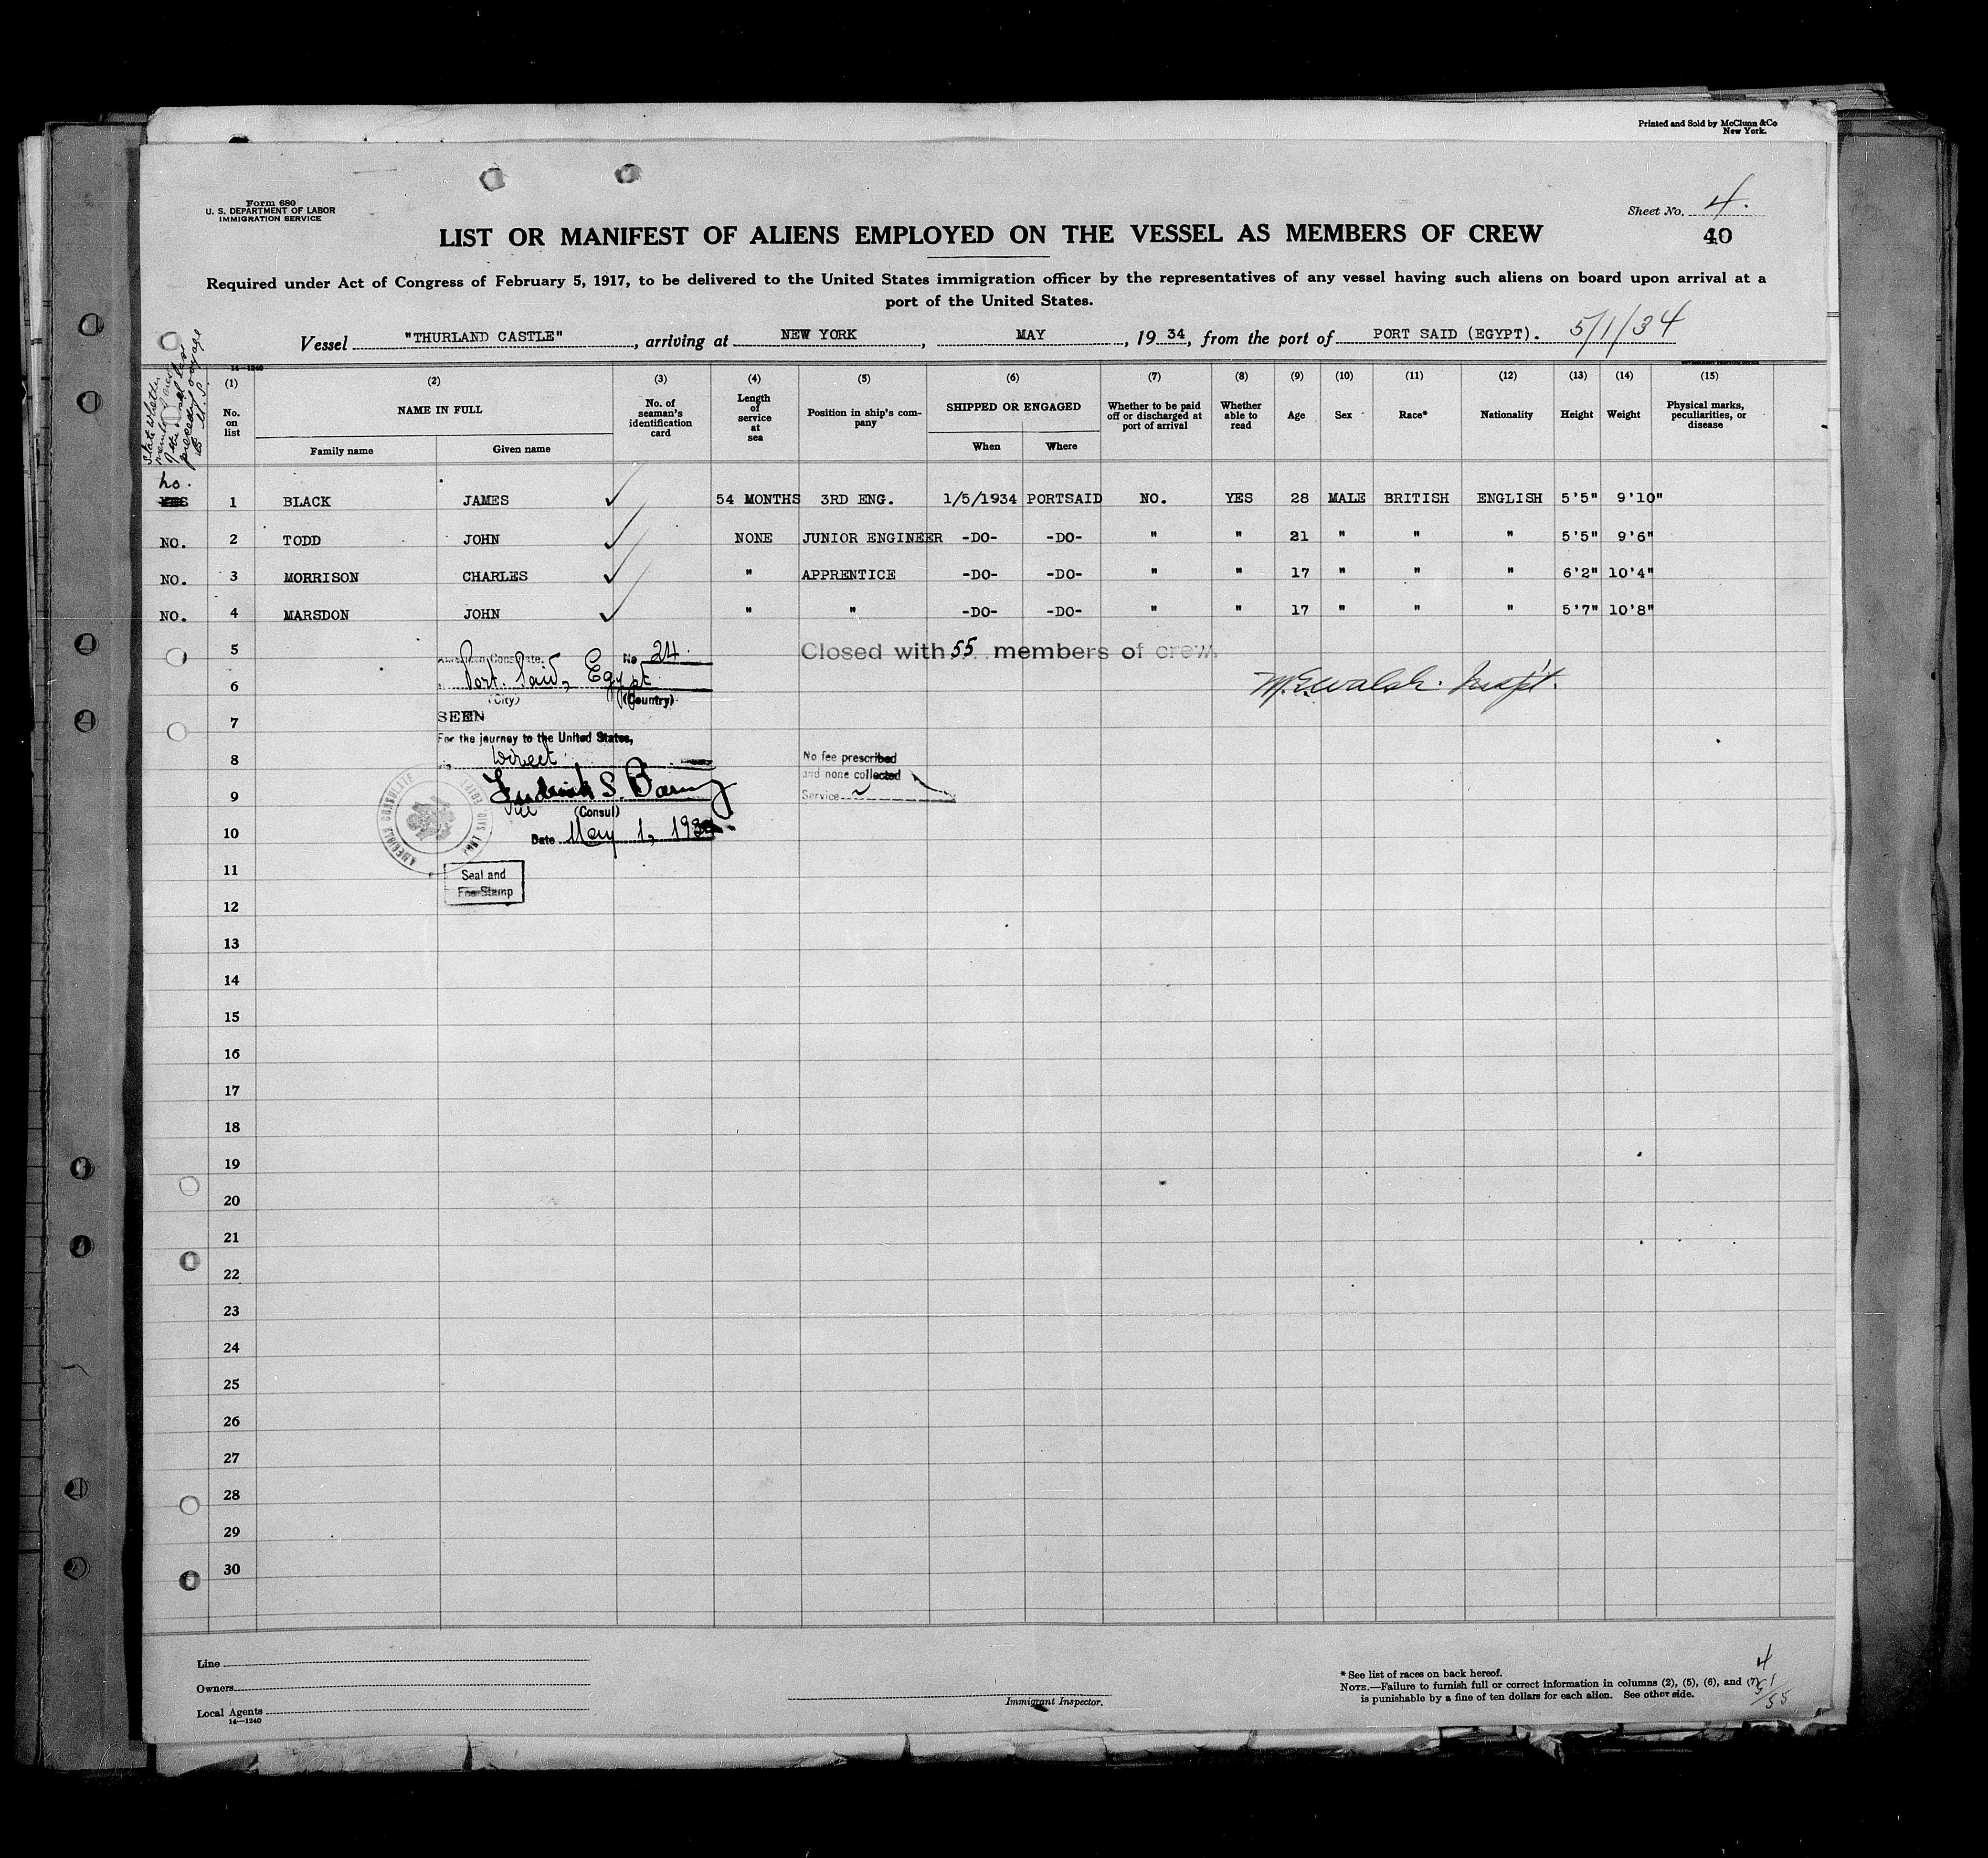 Printed and Sold by McClunn &Co
New York.
Form 680
U. S. DEPARTMENT OF LABOR
IMMIGRATION SERVICE
Sheet No. 4.
40
LIST OR MANIFEST OF ALIENS EMPLOYED ON THE VESSEL AS MEMBERS OF CREW
Required under Act of Congress of February 5, 1917, to be delivered to the United States immigration officer by the representatives of any vessel having such aliens on board upon arrival at a
port of the United States.
Vessel "THURLAND CASTLE", arriving at NEW YORK, MAY, 1934, from the port of PORT SAID (EGYPT). 5/1/34
14—1240
State whether
member
of the
preceding voyage
to U.S.
(1) (2) (3) (4) (5) (6) (7) (8) (9) (10) (11) (12) (13) (14) (15)
No. on list
NAME IN FULL
Family name Given name
No. of seaman's identification card
Length of service at sea
Position in ship's company
SHIPPED OR ENGAGED
When Where
Whether to be paid off or discharged at port of arrival
Whether able to read
Age
Sex
Race*
Nationality
Height
Weight
Physical marks, peculiarities, or disease
no.
YES 1 BLACK JAMES ✓ 54 MONTHS 3RD ENG. 1/5/1934 PORTSAID NO. YES 28 MALE BRITISH ENGLISH 5'5" 9'10"
NO. 2 TODD JOHN ✓ NONE JUNIOR ENGINEER -DO- -DO- " " 21 " " " 5'5" 9'6"
NO. 3 MORRISON CHARLES ✓ " APPRENTICE -DO- -DO- " " 17 " " " 6'2" 10'4"
NO. 4 MARSDON JOHN ✓ " " -DO- -DO- " " 17 " " " 5'7" 10'8"
5
American Consulate. No 24.
Closed with 55 members of crew.
6
Port Said, Egypt
(City) (Country)
M.E. Walsh. Insp't.
7
SEEN
For the journey to the United States,
8
via Direct
No fee prescribed
and none collected
Service
9
Frederick S. Barny
Vice (Consul)
AMERICAN CONSULATE PORT SAID, EGYPT
10
Date May 1, 1934.
11
Seal and
Fee Stamp
12
13
14
15
16
17
18
19
20
21
22
23
24
25
26
27
28
29
30
Line
Owners
Local Agents
14—1240
Immigrant Inspector.
* See list of races on back hereof.
NOTE.—Failure to furnish full or correct information in columns (2), (5), (6), and (7)
is punishable by a fine of ten dollars for each alien. See other side.
4
55